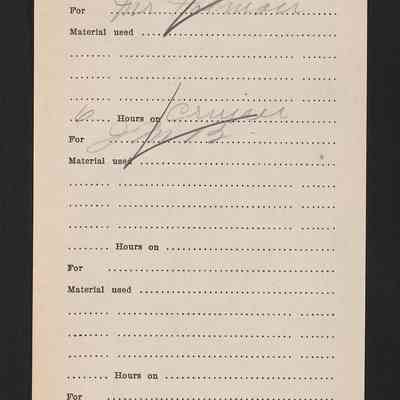 For
Material used
6 Hours on Cruiser
For Jim B.
Material used
Hours on
For
Material used
Hours on
For